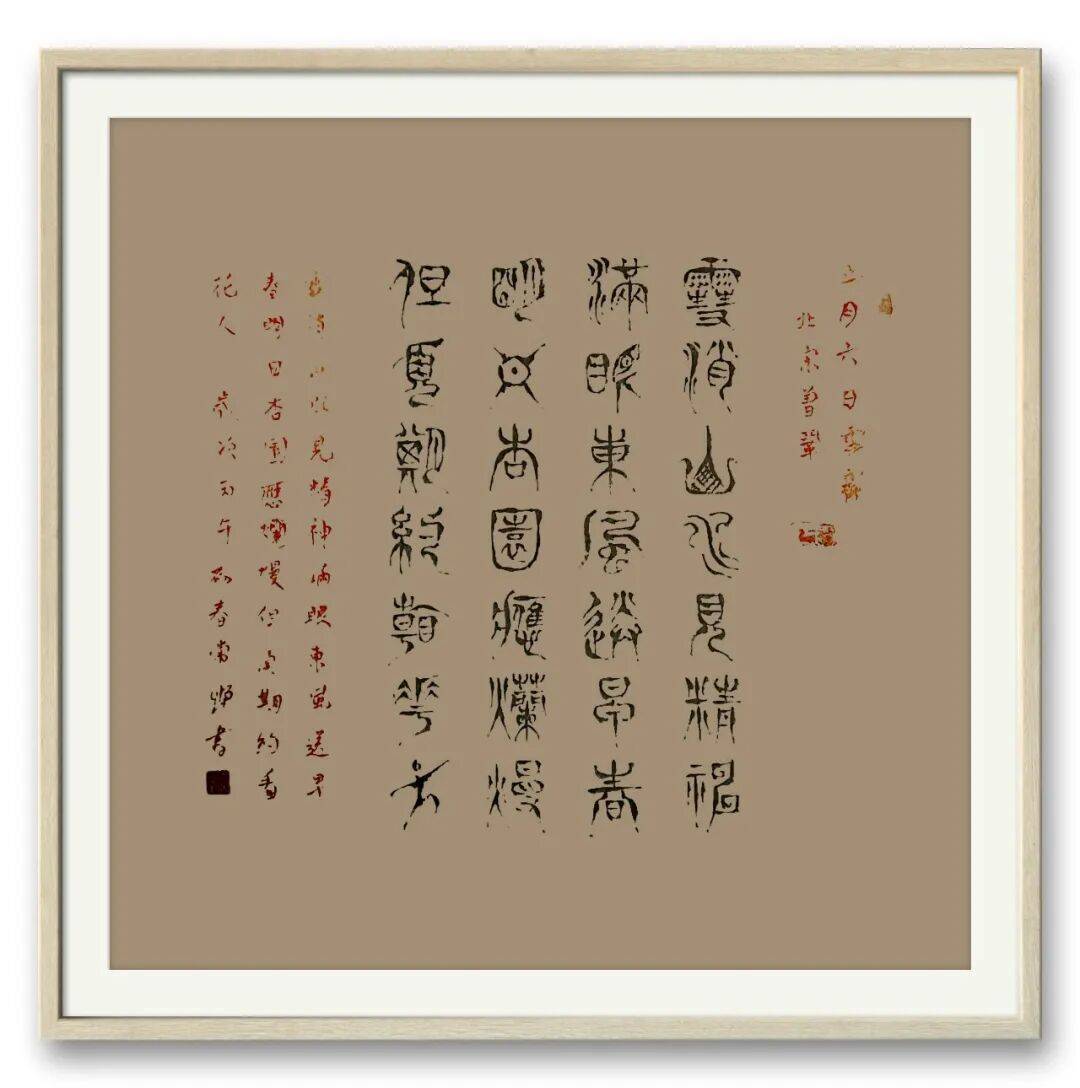 正月六日雪霽
北宋曾鞏
雪消山水見精神
滿眼東風送早春
明日杏園應爛熳
但須期約看華人
雪消山水見精神滿眼東風送早
春明日杏園應爛熳但須期約看
花人 歲次丙午初春常書